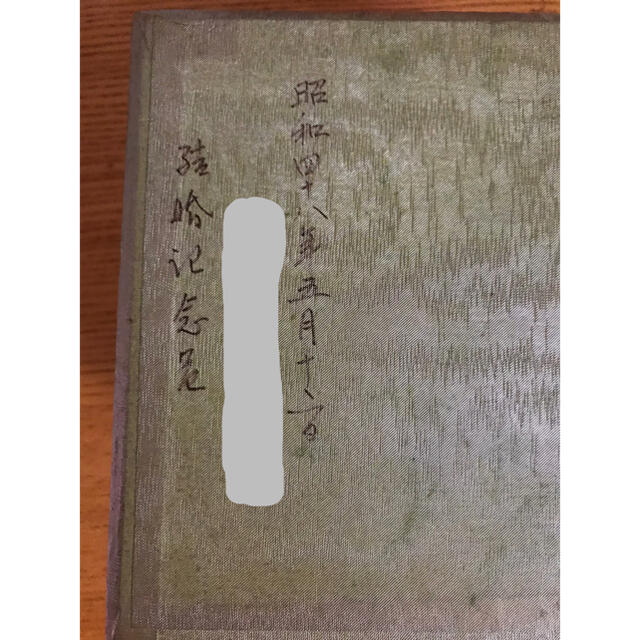 昭和四十八年五月十二日
結婚記念品